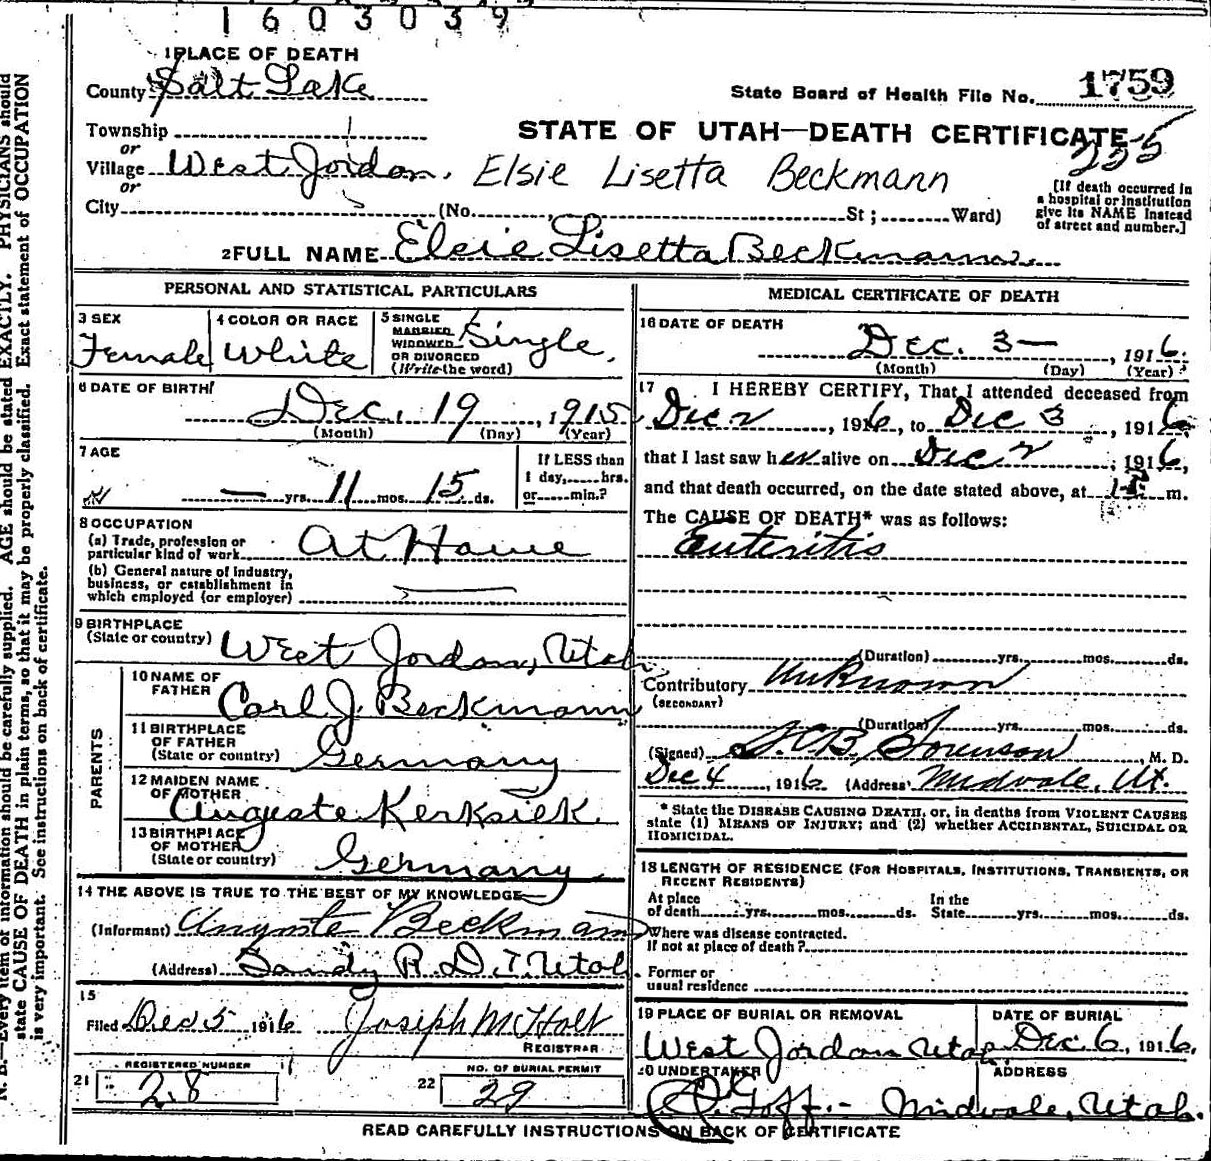 1603039
1 PLACE OF DEATH
County Salt Lake
State Board of Health File No. 1759
Township
STATE OF UTAH—DEATH CERTIFICATE
225
or
Village West Jordan. Elsie Lisetta Beckmann
or
City (No. St; Ward)
[If death occurred in a hospital or institution give its NAME instead of street and number.]
2 FULL NAME Elsie Lisetta Beckmann
PERSONAL AND STATISTICAL PARTICULARS
3 SEX
Female
4 COLOR OR RACE
White
5 SINGLE
MARRIED
WIDOWED
OR DIVORCED
(Write the word)
Single.
6 DATE OF BIRTH
Dec. 19, 1915
(Month) (Day) (Year)
7 AGE
— yrs. 11 mos. 15 ds.
If LESS than
1 day, hrs.
or min.?
8 OCCUPATION
(a) Trade, profession or
particular kind of work At Home
(b) General nature of industry,
business, or establishment in
which employed (or employer)
9 BIRTHPLACE
(State or country) West Jordan, Utah
PARENTS
10 NAME OF
FATHER Carl J. Beckmann
11 BIRTHPLACE
OF FATHER
(State or country) Germany
12 MAIDEN NAME
OF MOTHER Auguste Kerksiek.
13 BIRTHPLACE
OF MOTHER
(State or country) Germany
14 THE ABOVE IS TRUE TO THE BEST OF MY KNOWLEDGE
(Informant) Auguste Beckmann
(Address) Sandy R.D. 1. Utah
15
Filed Dec 5 1916 Joseph M Holt
REGISTRAR
REGISTERED NUMBER
21 28
NO. OF BURIAL PERMIT
22 29
MEDICAL CERTIFICATE OF DEATH
16 DATE OF DEATH
Dec. 3—, 1916.
(Month) (Day) (Year)
17 I HEREBY CERTIFY, That I attended deceased from
Dec 2, 1916, to Dec 3, 1916
that I last saw her alive on Dec 2, 1916,
and that death occurred, on the date stated above, at m.
The CAUSE OF DEATH* was as follows:
Enteritis
(Duration) yrs. mos. ds.
Contributory Unknown
(SECONDARY)
(Duration) yrs. mos. ds.
(Signed) S.C.B. Sorenson, M. D.
Dec 4, 1916 (Address) Midvale, Ut.
* State the DISEASE CAUSING DEATH, or, in deaths from VIOLENT CAUSES
state (1) MEANS OF INJURY; and (2) whether ACCIDENTAL, SUICIDAL OR
HOMICIDAL.
18 LENGTH OF RESIDENCE (FOR HOSPITALS, INSTITUTIONS, TRANSIENTS, OR
RECENT RESIDENTS)
At place
of death yrs. mos. ds.
In the
State yrs. mos. ds.
Where was disease contracted.
If not at place of death?
Former or
usual residence
19 PLACE OF BURIAL OR REMOVAL
West Jordan Utah
DATE OF BURIAL
Dec. 6, 1916.
20 UNDERTAKER
Goff.
ADDRESS
Midvale, Utah.
READ CAREFULLY INSTRUCTIONS ON BACK OF CERTIFICATE
N. B.—Every item of information should be carefully supplied. AGE should be stated EXACTLY. PHYSICIANS should
state CAUSE OF DEATH in plain terms, so that it may be properly classified. Exact statement of OCCUPATION
is very important. See instructions on back of certificate.